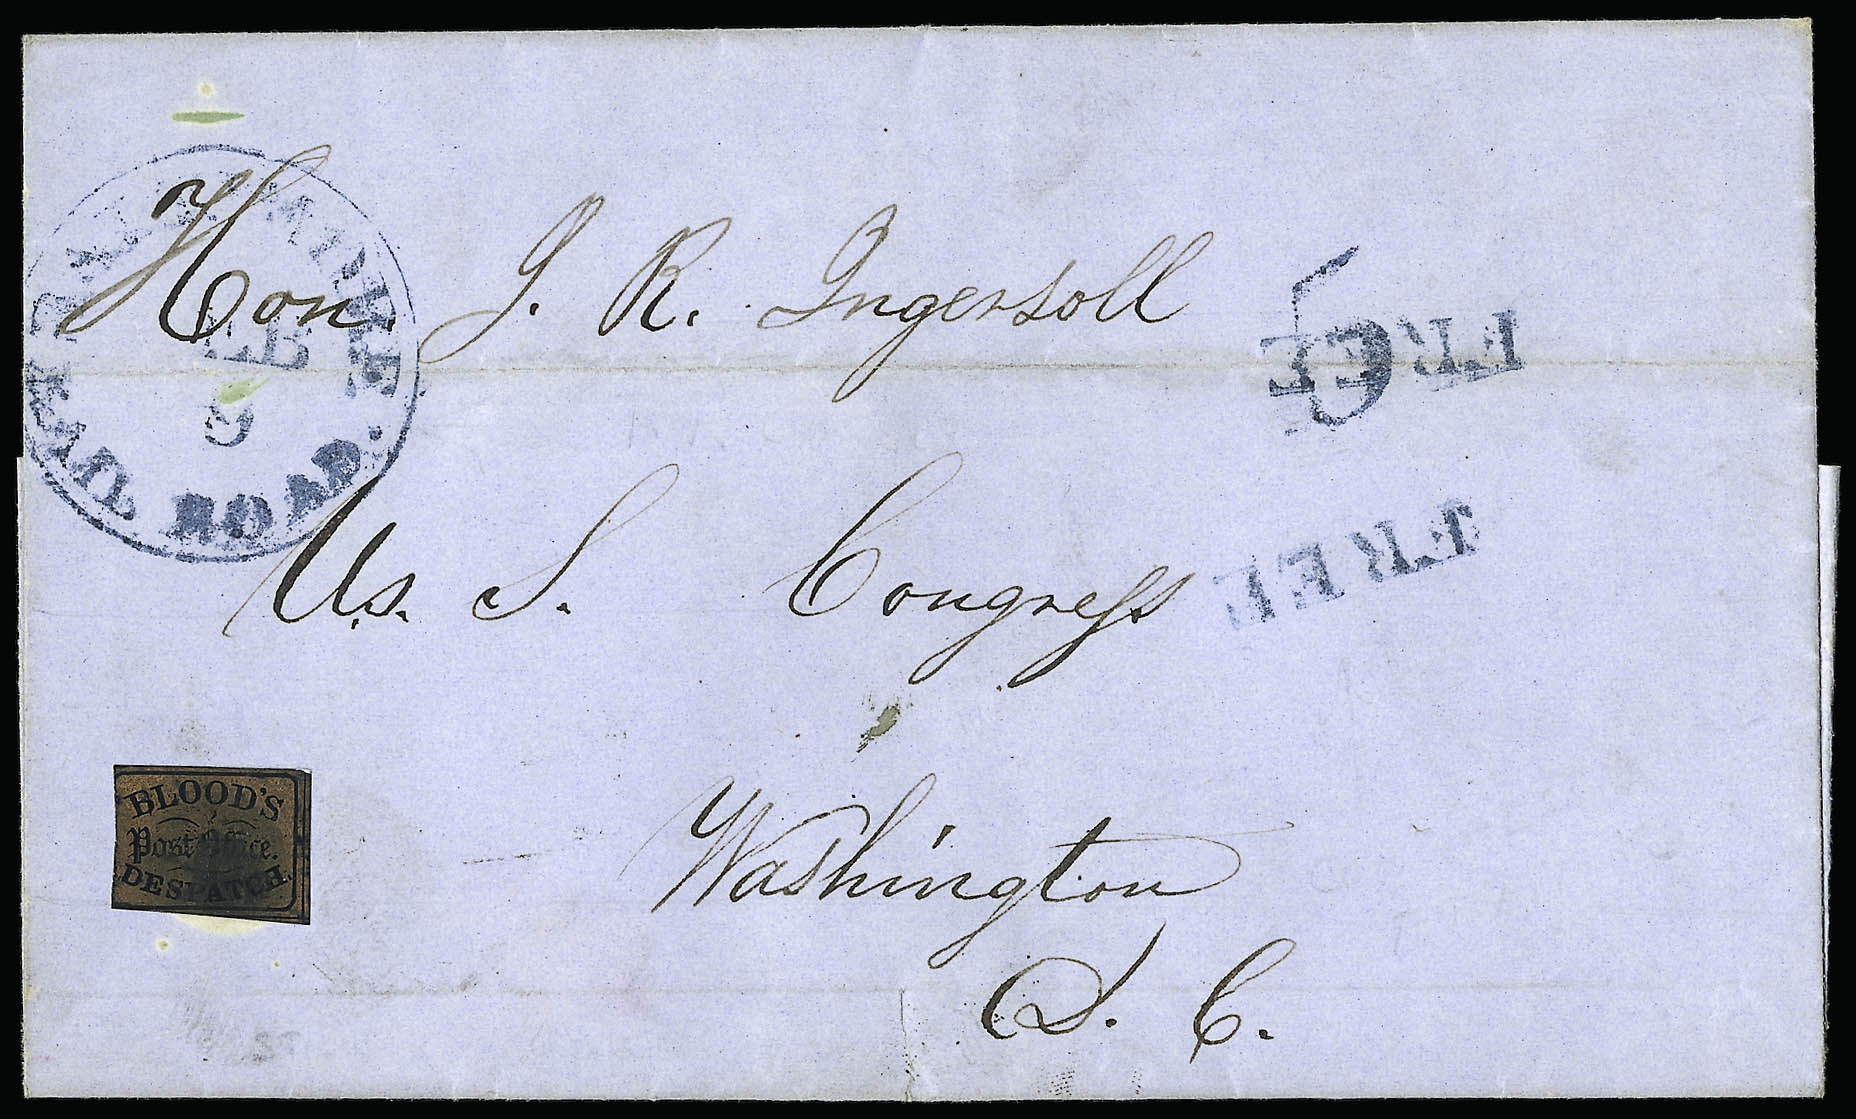 Hon. J. R. Ingersoll
5
FREE
U. S. Congress
FREE
Washington
D. C.
RAIL ROAD.
BLOOD'S
Post Office.
DESPATCH.